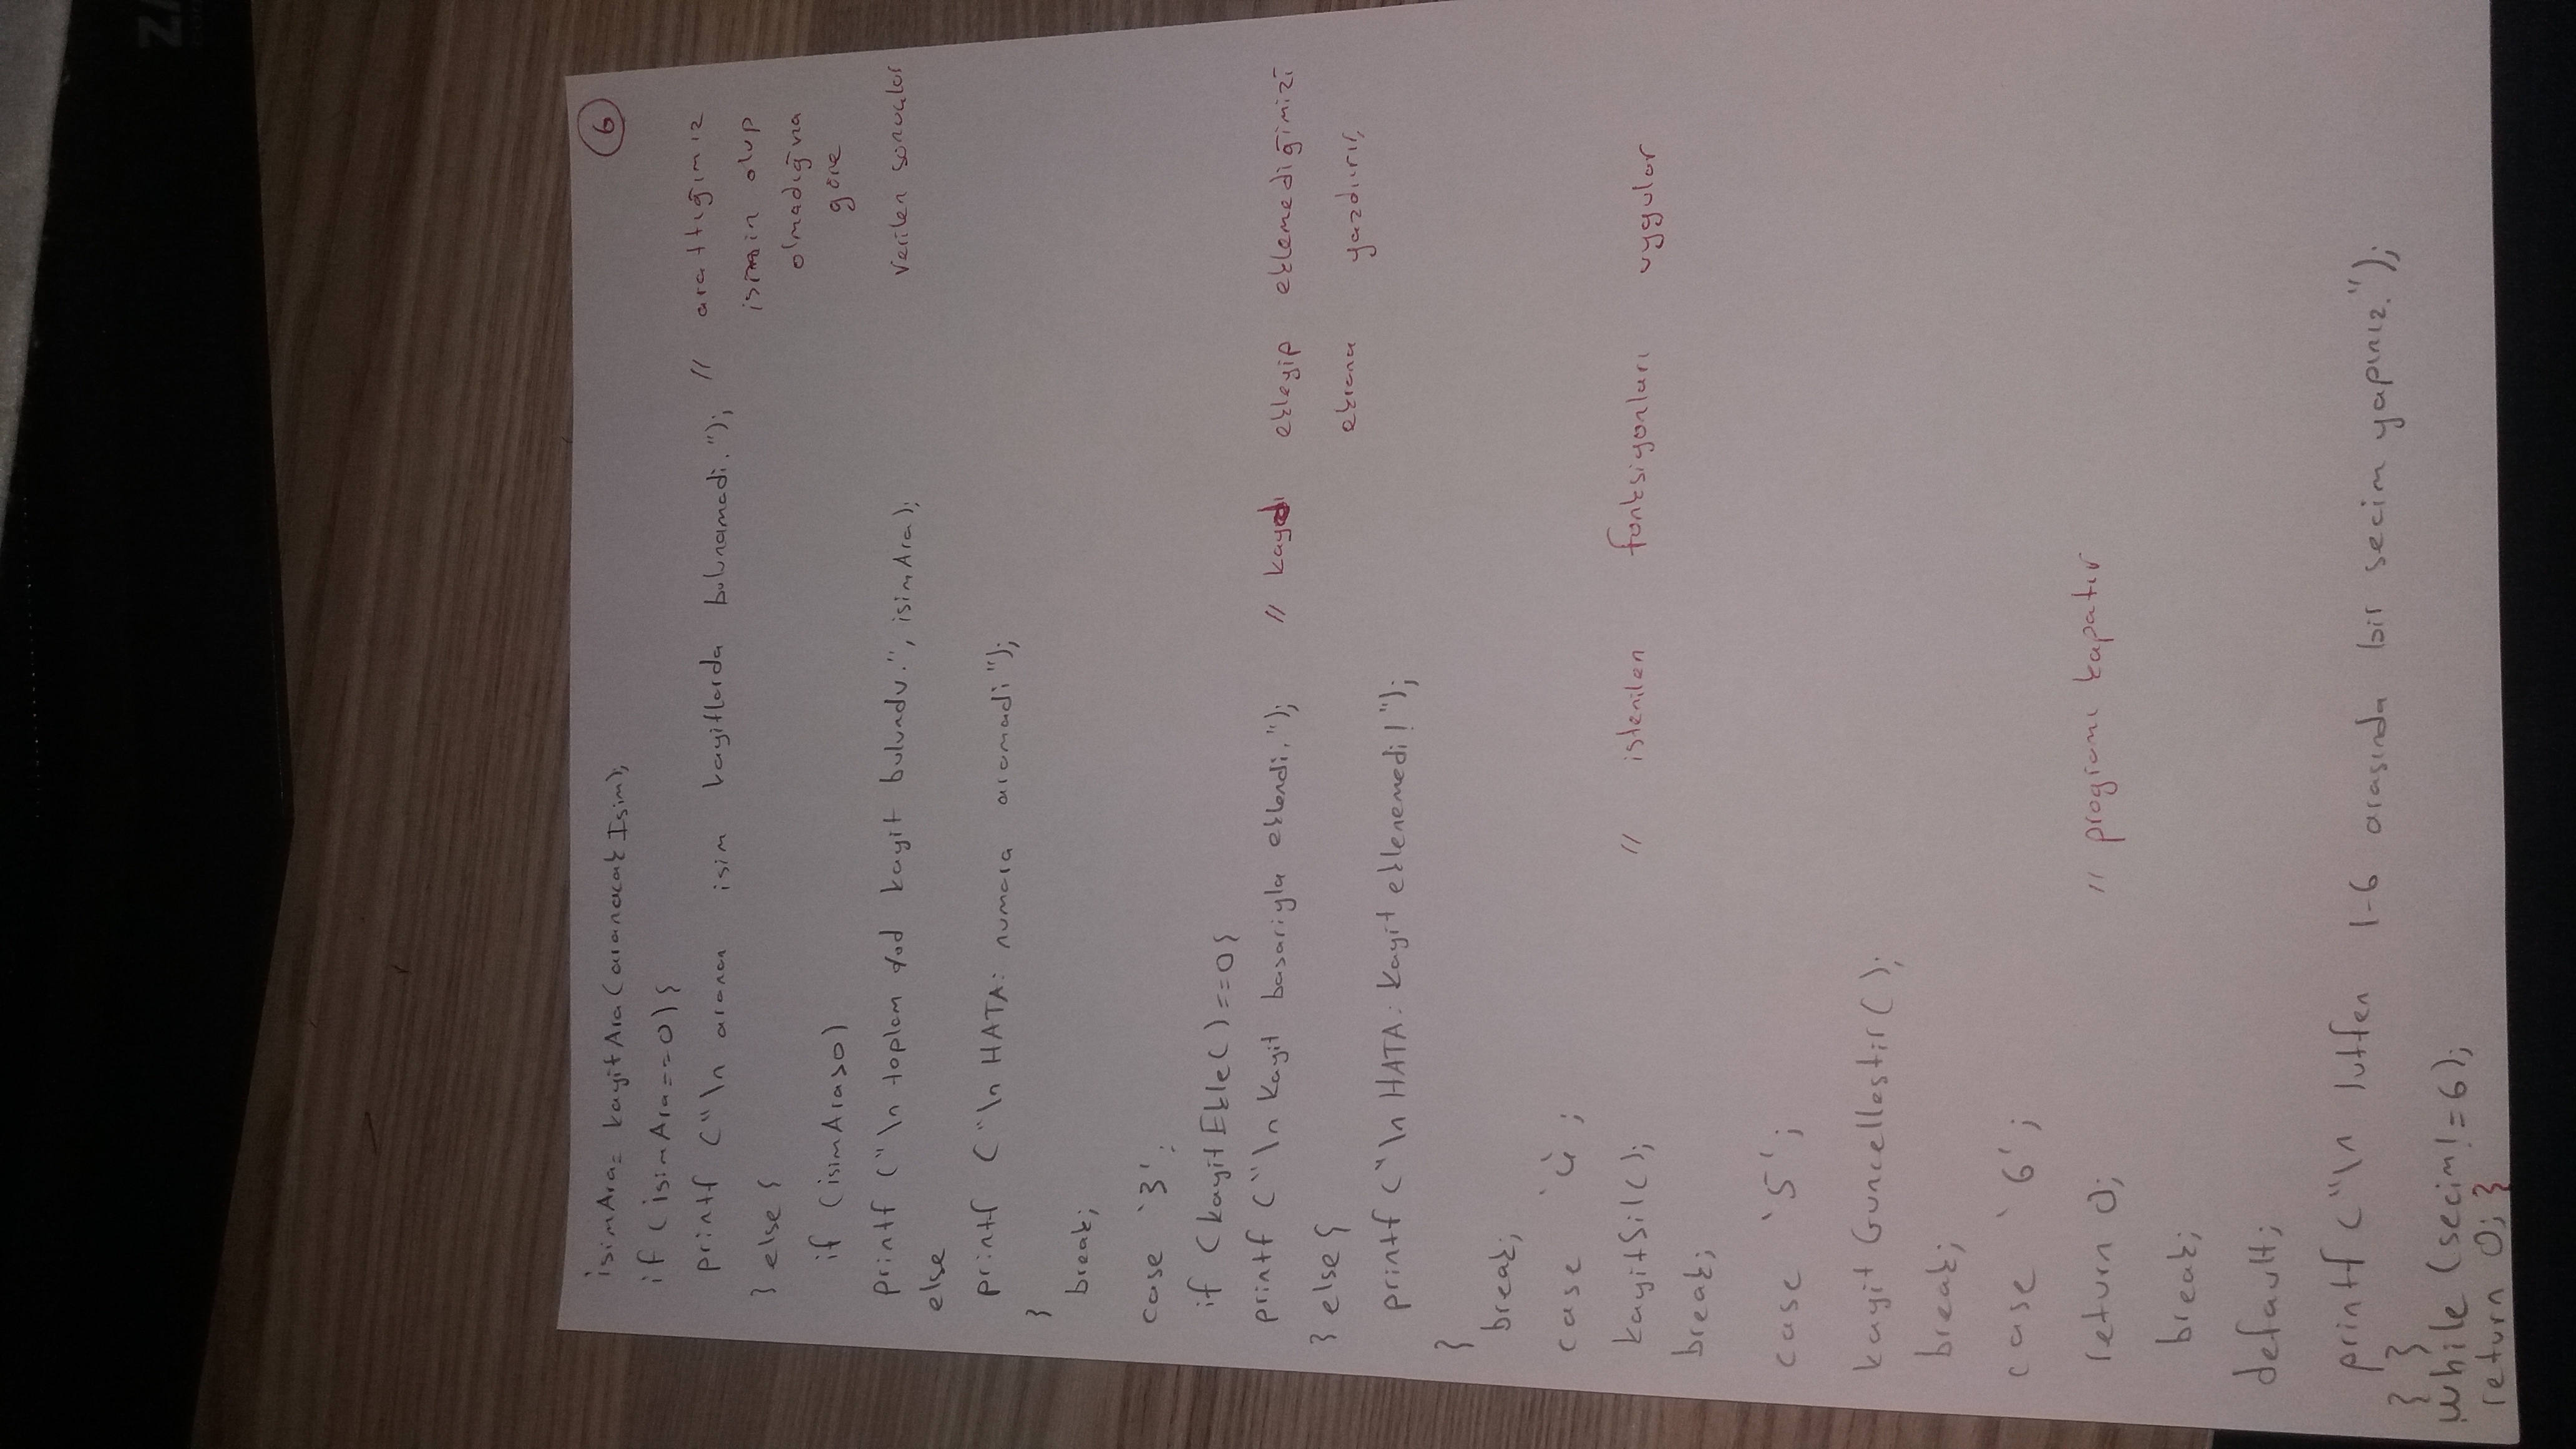 6
isimAra= kayitAra(aranacakIsim);
if(isimAra==0){
printf("\n aranan isim kayitlarda bulunamadi."); // arattığımız
} else { ismin olup
if(isimAra>0) olmadığına
göre
printf("\n toplam %d kayit bulundu.", isimAra); verilen sonuçlar
else
printf("\n HATA: numara aranmadi");
}
break;
case '3';
if(kayitEkle()==0{
printf("\n kayit basariyla eklendi."); // kaydı ekleyip eklemediğimizi
} else{ ekrana yazdırır,
printf("\n HATA: kayit eklenemedi!");
}
break;
case '4';
kayitSil(); // istenilen fonksiyonları uygular
break;
case '5';
kayitGuncellestir();
break;
case '6';
return 0; // programı kapatır
break;
default;
printf("\n lutfen 1-6 arasında bir secim yapınız.");
} }
while (secim!=6);
return 0; }
Z